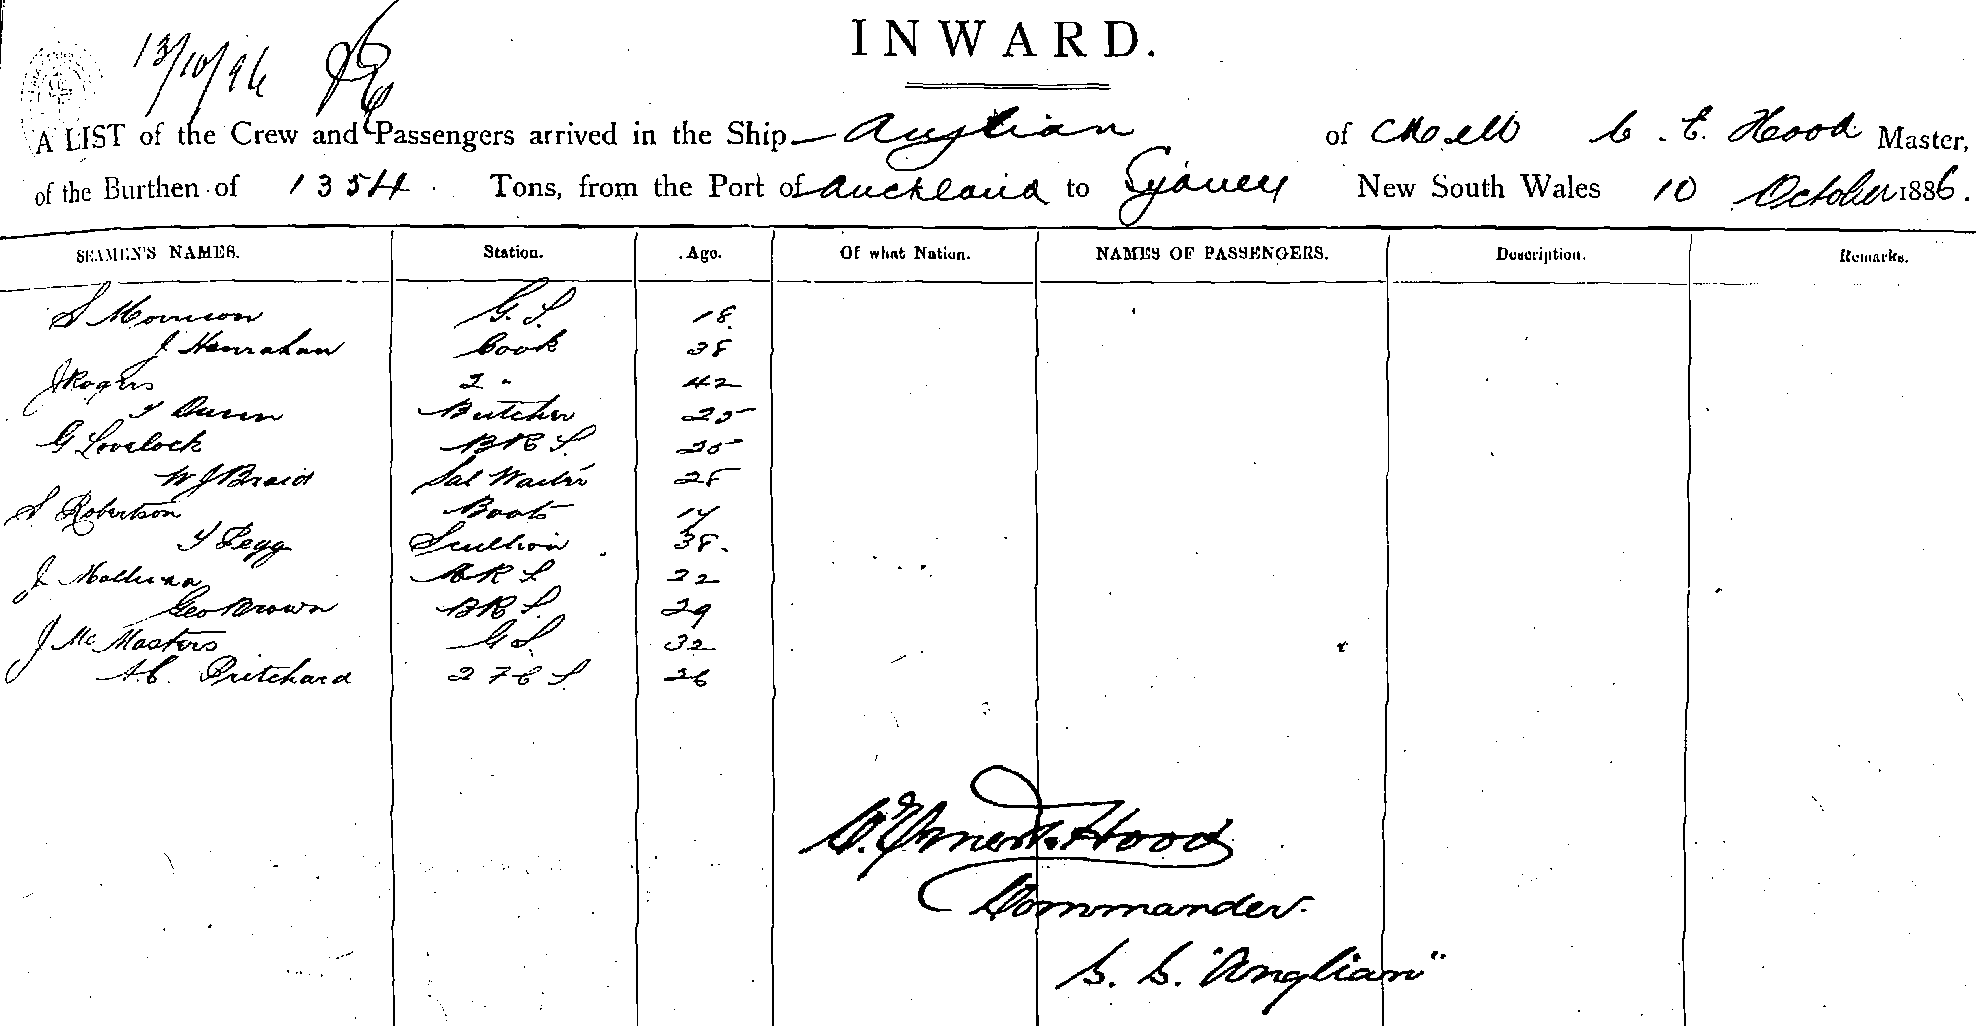 INWARD.
13/10/96
A LIST of the Crew and Passengers arrived in the Ship Anglian of C. E. Hood Master,
of the Burthen of 1354 Tons, from the Port of Auckland to Sydney New South Wales 10 October 1886.
SEAMEN'S NAMES. Station. Age. Of what Nation. NAMES OF PASSENGERS. Description. Remarks.
S Morrison G. S. 18
J Hanrahan Cook 38
J Rogers 2 " 42
Butcher 25
G Lovelock B R S. 25
W J Braid Sal Waiter 28
S Robertson Boots 17
T Pegg Scullion 38.
J R S 22
Geo Brown B R S. 29
J McMasters G S. 32
A. C. Pritchard 2 F C S. 26
C. Ernest Hood
Commander.
S. S. "Anglian"